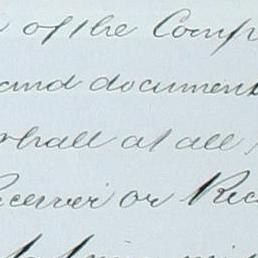 of the Comp
and document
shall at all
Receiver or Rec